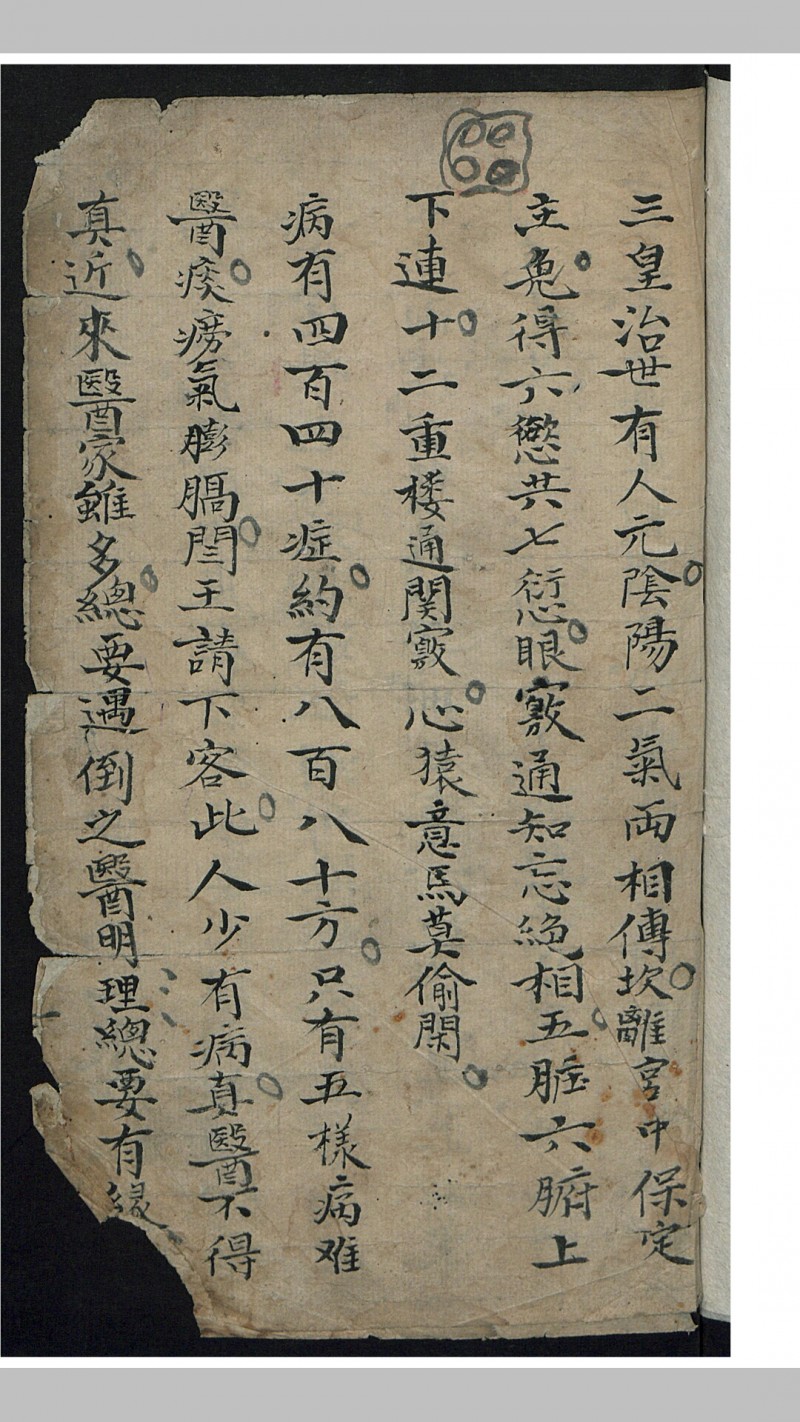 三皇治世有人元陰陽二氣両相傳坎離宮中保定
主兔得六慾共七愆眼竅通知忘絶相五脏六腑上
下連十二重楼通関竅心猿意馬莫偷閑
病有四百四十症約有八百八十方只有五樣病难
醫痰癆氣膨膈閆王請下客此人少有病真醫不得
真近來醫家雖多總要遇倒之醫明理總要有緣